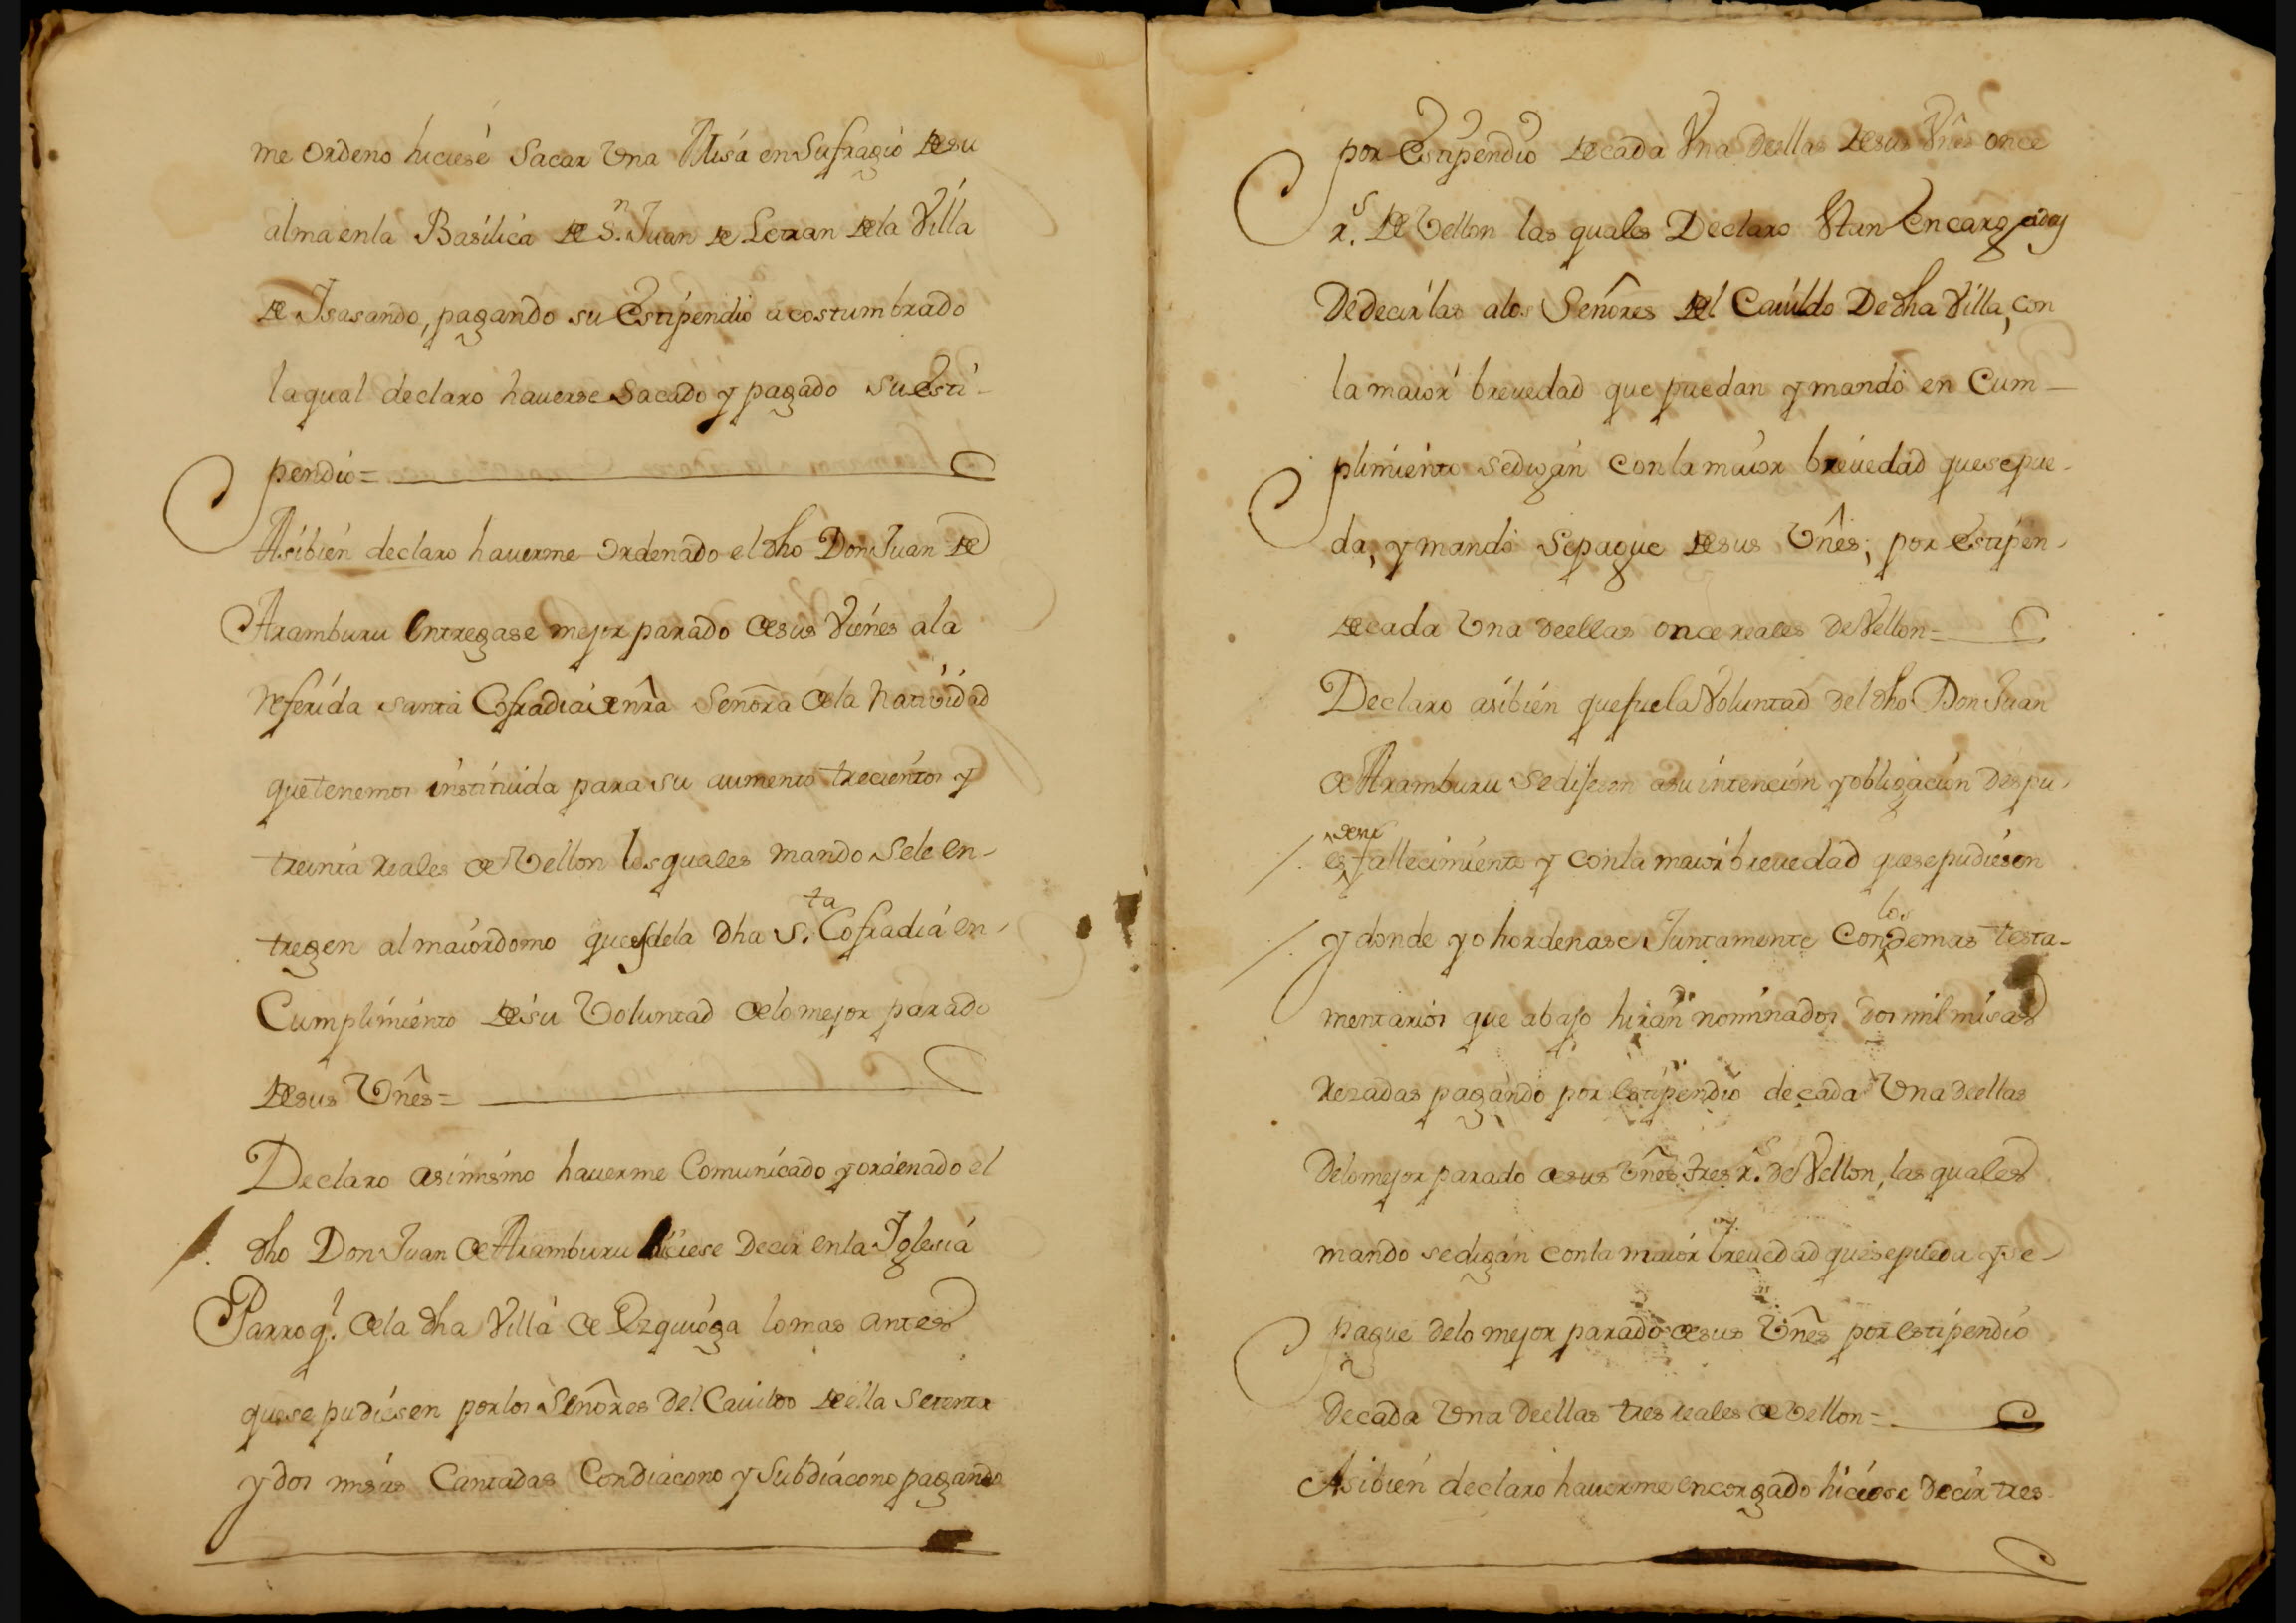 me ordeno hiciese Sacar Una Misa en Sufragio de su
alma en la Basilica de S.n Juan de Letran de la Villa
de Isasondo, pagando su estipendio acostumbrado
la qual declaro hauerse Sacado y pagado su esti-
pendio=
Asibien declaro hauerme ordenado el dho Don Juan de
Aramburu entregase mejor parado de sus Vienes a la
referida santa Cofradia de nra Señora de la Natividad
que tenemos instituida para su aumento trecientos y
treinta reales de Vellon los quales mando se le en-
tregen al maiordomo que es de la dha S.ta Cofradia en
Cumplimiento de su Voluntad de lo mejor parado
de sus Vnes=
Declaro asimismo hauerme Comunicado y ordenado el
dho Don Juan de Aramburu hiciese Decir en la Iglesia
Parroq.l de la dha Villa de Ezquioga lo mas antes
que se pudiesen por los Señores del Cauildo de ella setenta
y dos misas Cantadas Con diacono y Subdiacono pagando
por Estipendio de cada Vna de ellas de sus Vnes once
r.s de Vellon las quales Declaro Stan encargadas
de decirlas a los Señores del Cauildo de dha Villa, con
la maior breuedad que puedan y mando en Cum-
plimiento se digan con la maior breuedad que se pue-
da, y mando se pague de sus Vnes, por estipen-
de cada Vna de ellas once reales de Vellon=
Declaro asibien que fue la Voluntad del dho Don Juan
de Aramburu se dijesen a su intencion y obligacion despu-
es de su fallecimiento y con la maior breuedad que se pudiesen
y donde yo hordenase Juntamente Con los demas testa-
mentarios que abajo hiran nominados dos mil misas
rezadas pagando por estipendio de cada Vna de ellas
de lo mejor parado de sus Vnes tres r.s de Vellon, las quales
mando se digan con la maior breuedad que se pueda y se
pague de lo mejor parado de sus Vnes por estipendio
de cada Vna de ellas tres reales de Vellon=
Asibien declaro hauerme encargado hiciese decir tres